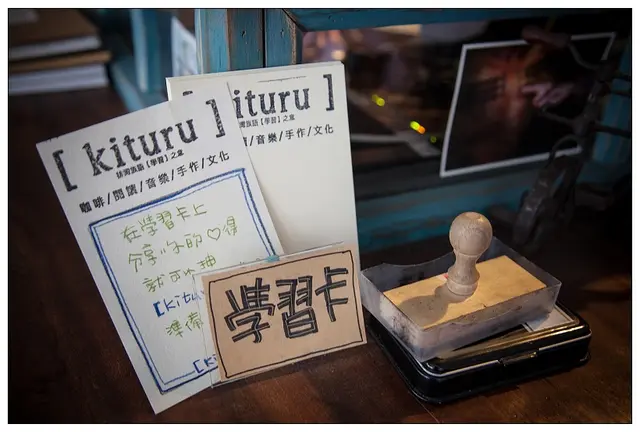 [ kituru ]
排灣族語【學習】之意
咖啡/閱讀/音樂/手作/文化
在學習卡上
分享你的♡得
就可以抽
[kitu
準備
[ki
ituru ]
灣族語【學習】之意
/音樂/手作/文化
學習卡